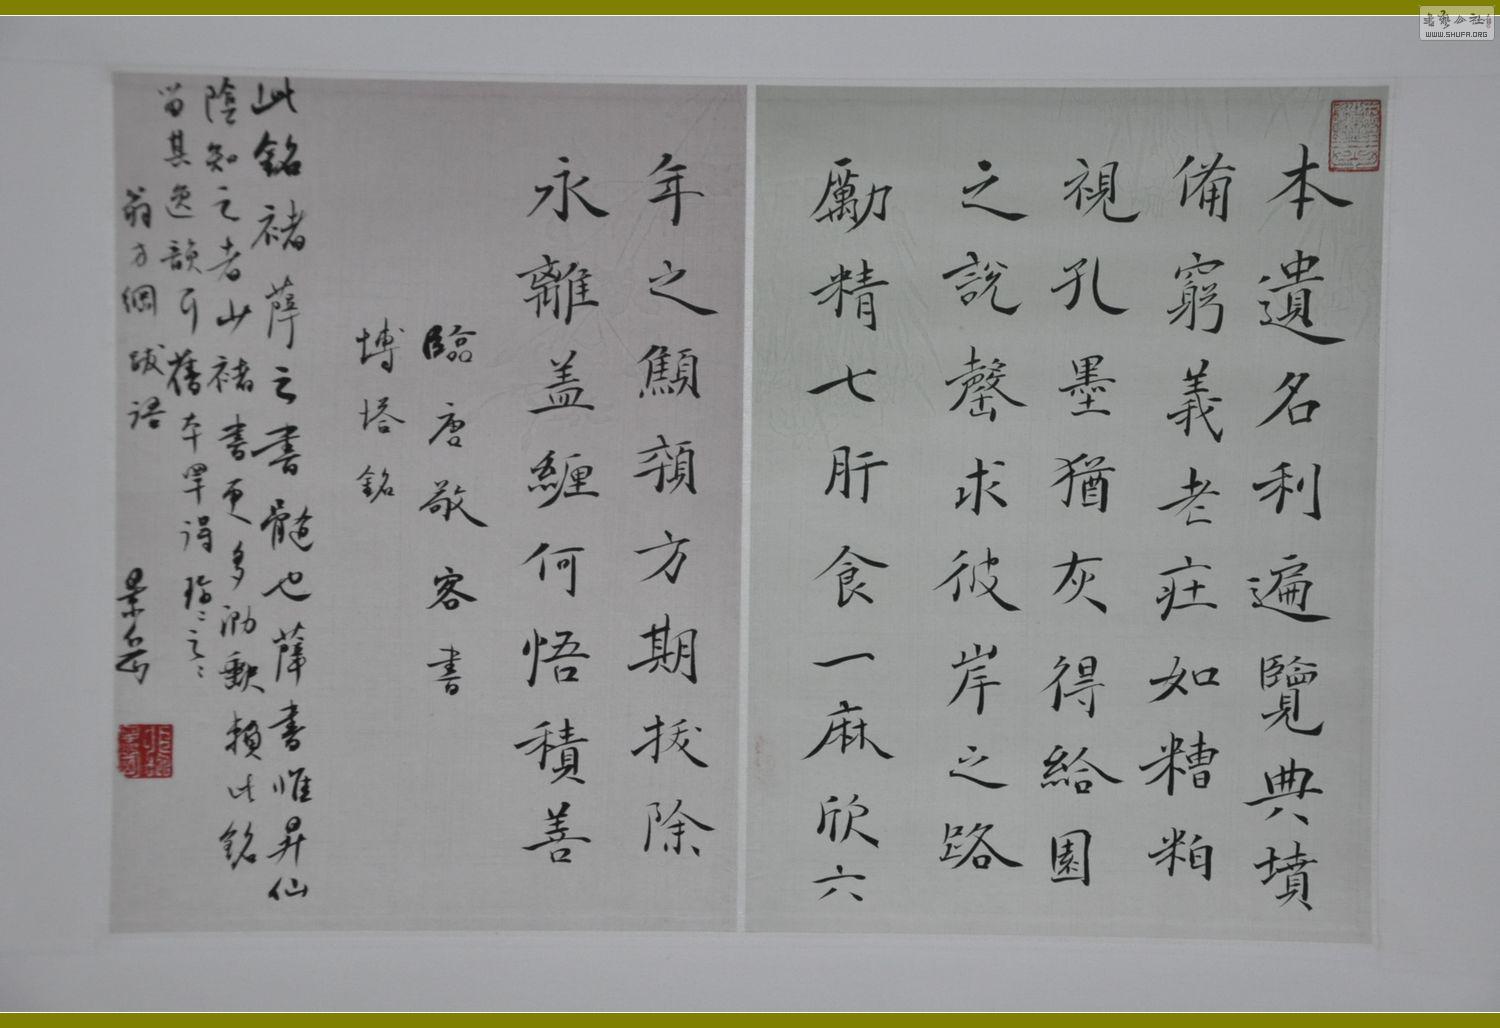 本遺名利遍覽典墳
備窮義老疘如糟粕
視孔墨猶灰得給園
之說罄求彼岸之路
勵精七肝食一麻欣六
年之顦顇方期拔除
永離蓋纏何悟積善
臨唐敬客書
塼塔銘
此銘褚薛之書髓也薛書惟昇仙
陰知之者少褚書更多泐斁賴此銘
留其逸韻耳舊本罕得珍之
翁方綱跋語
WWW.SHUFA.ORG